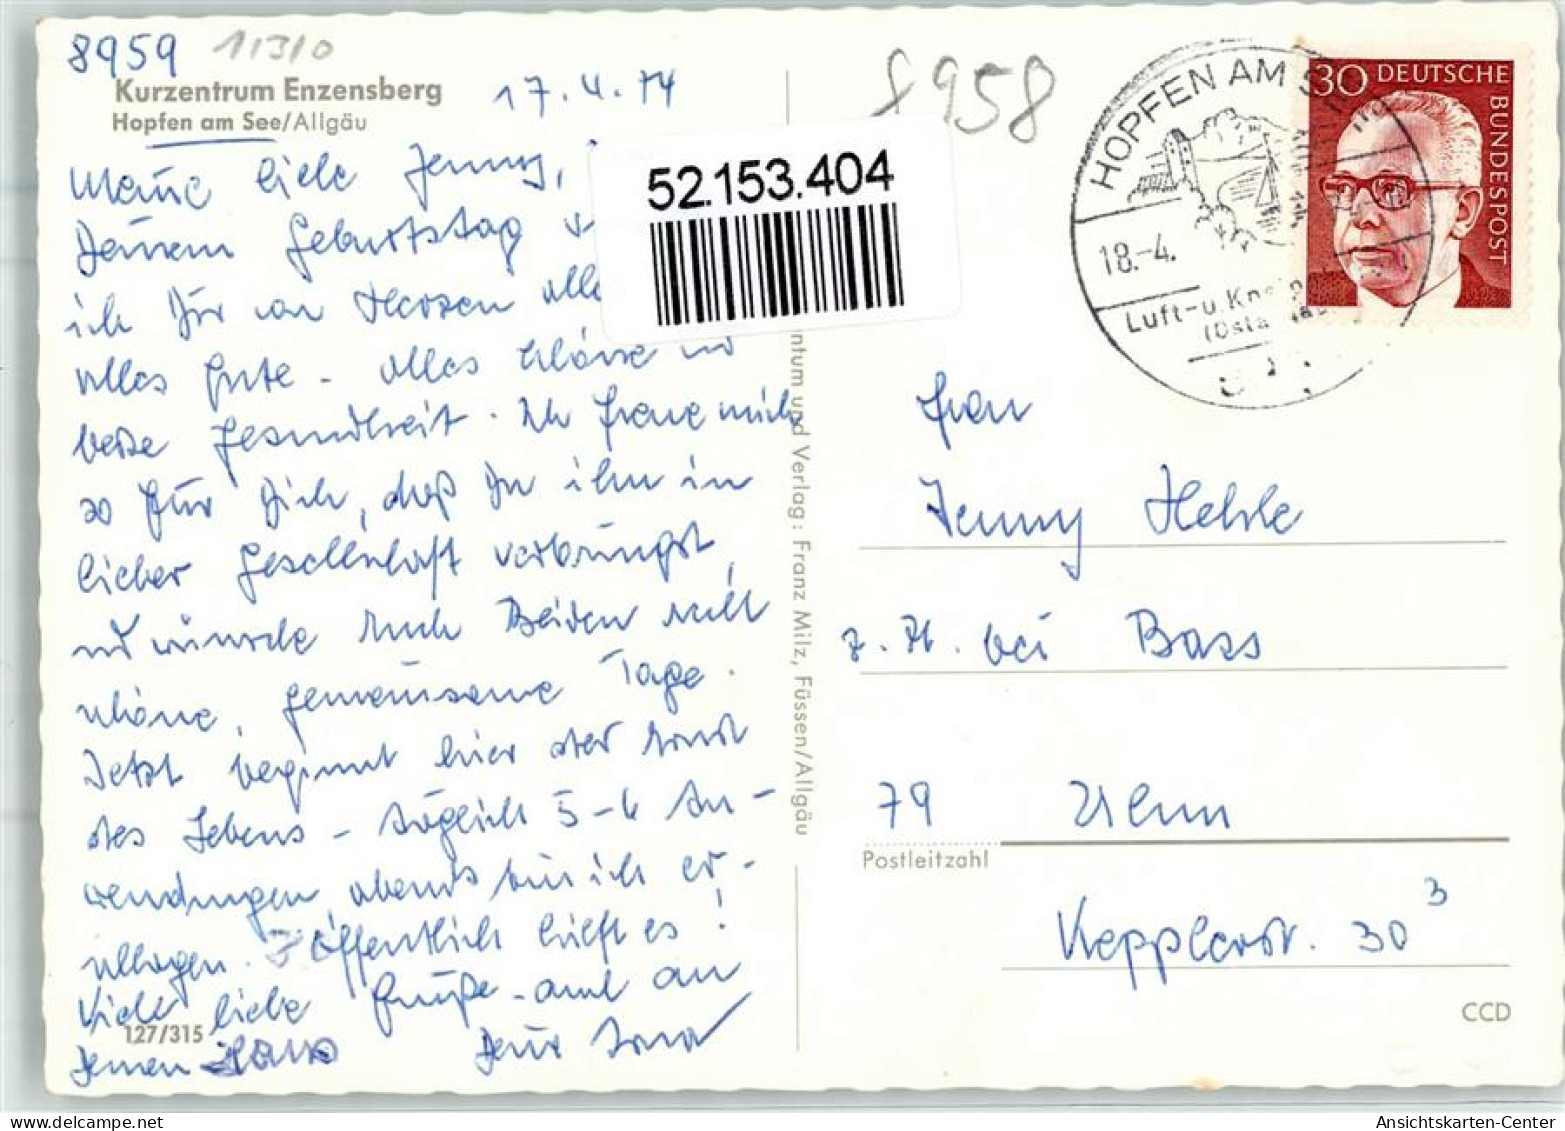 8959 11310
Kurzentrum Enzensberg
Hopfen am See/Allgäu
17.4.74
Meine liebe Jenny,
Deinem Geburtstag
ich Dir von Herzen alle
alles Gute - alles Schöne und
beste Gesundheit. Ich freue mich
so für Dich, daß Du ihn in
lieber Gesellschaft verbringst,
und wünsche Euch Beiden recht
schöne, gemeinsame Tage.
Jetzt beginnt hier der Ernst
des Lebens - täglich 5-6 An-
wendungen, abends bin ich er-
schlagen. Hoffentlich hilft es!
Viele liebe Grüße - auch an
127/315
Deinen Deine
8958
52.153.404
ntum und Verlag: Franz Milz, Füssen/Allgäu
HOPFEN AM S
18.-4.
Luft-u. Kne
(Osta
30 DEUTSCHE
BUNDESPOST
Frau
Jenny Hehle
z. Zt. bei Bass
79 Ulm
Postleitzahl
Kepplerstr. 30³
CCD
Ansichtskarten-Center